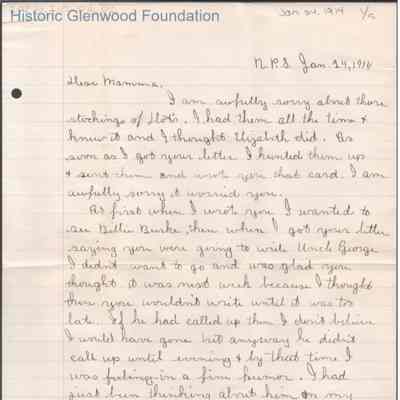 Historic Glenwood Foundation
Jan 24, 1914 1/5
N.P.S. Jan. 24, 1914
Dear Mamma,
I am awfully sorry about those
stockings of Dot's. I had them all the time &
knew it and I thought Elizabeth did. As
soon as I got your letter I hunted them up
& sent them and wrote you that card. I am
awfully sorry it worried you.
At first when I wrote you I wanted to
see Billie Burke, then when I got your letter
saying you were going to write Uncle George
I didn't want to go and was glad you
thought it was next week because I thought
then you wouldn't write until it was too
late. If he had called up then I don't believe
I would have gone but anyway he didn't
call up until evening & by that time I
was feeling in a fine humor. I had
just been thinking about him on my